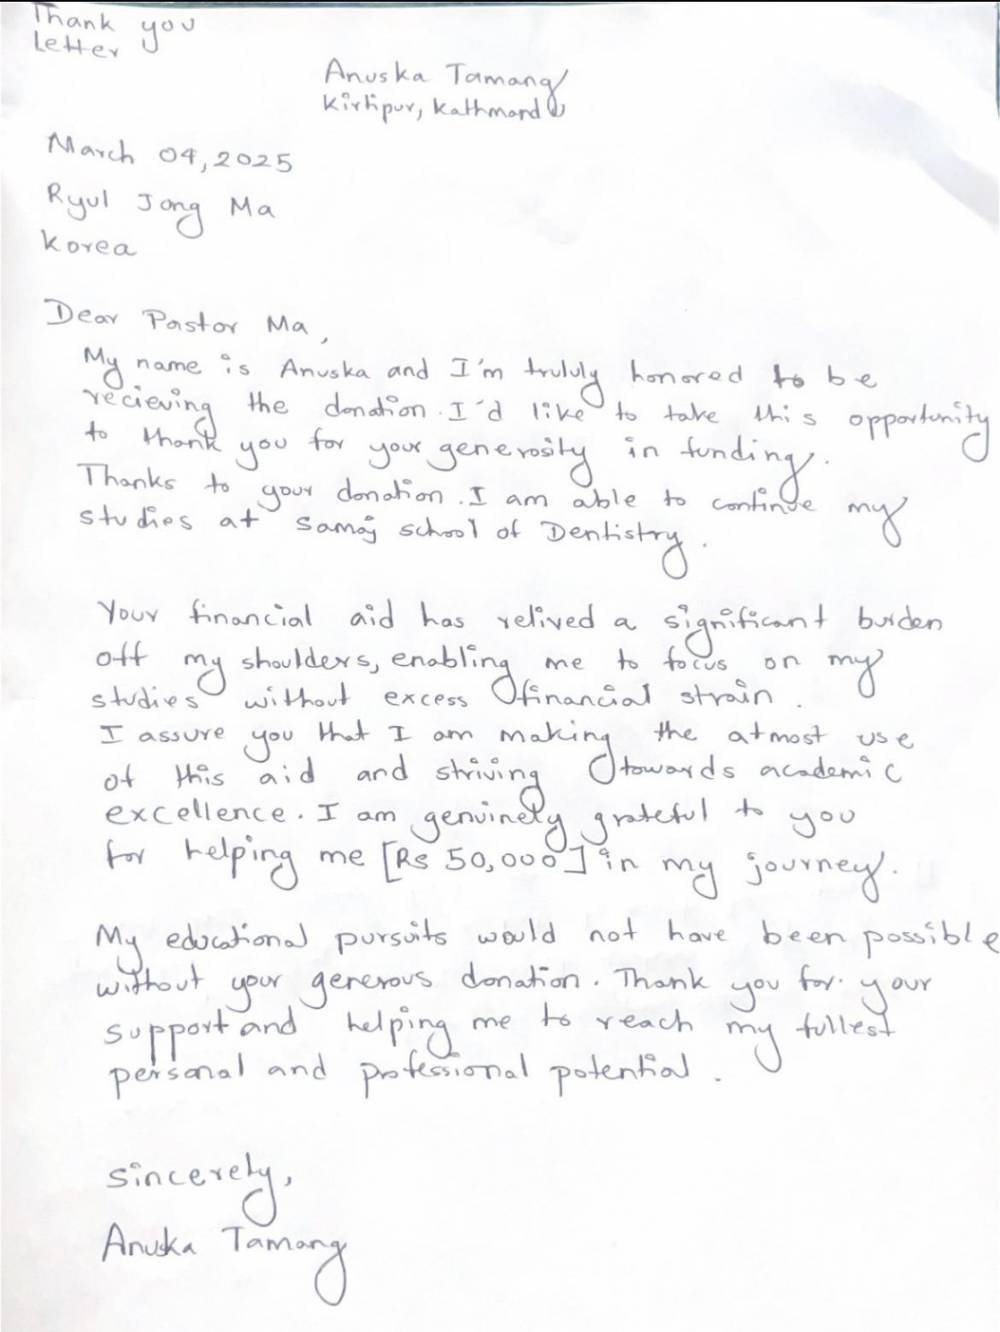 Thank you
Letter
Anuska Tamang
Kirtipur, Kathmandu
March 04, 2025
Ryul Jong Ma
Korea
Dear Pastor Ma,
My name is Anuska and I'm trululy honored to be
recieving the donation. I'd like to take this opportunity
to thank you for your generosity in funding.
Thanks to your donation. I am able to continue my
studies at Samaj school of Dentistry.
Your financial aid has relived a significant burden
off my shoulders, enabling me to focus on my
studies without excess financial strain.
I assure you that I am making the atmost use
of this aid and striving towards academic
excellence. I am genuinely grateful to you
for helping me [Rs 50,000] in my journey.
My educational pursuits would not have been possible
without your generous donation. Thank you for your
support and helping me to reach my fullest
personal and professional potential.
Sincerely,
Anuska Tamang